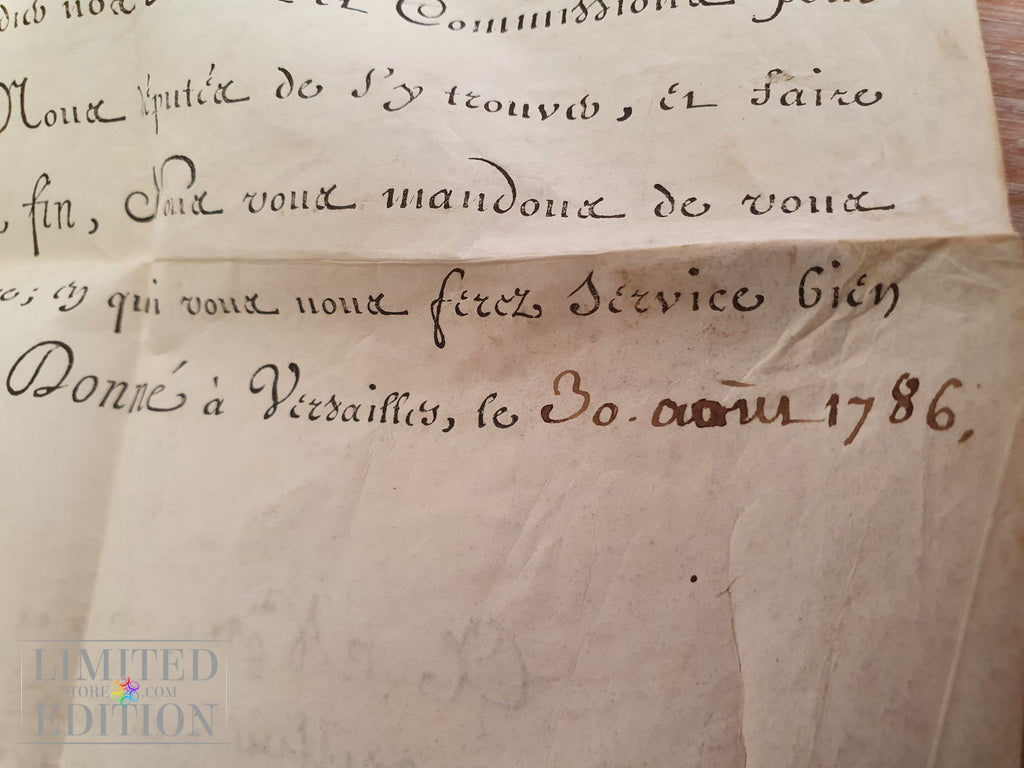 Commissions pour
Nous députés de s'y trouver, et faire
fin, Nous vous mandons de vous
en qui vous nous ferez service bien
Donné à Versailles, le 30. août 1786.
LIMITED
STORE .COM
EDITION